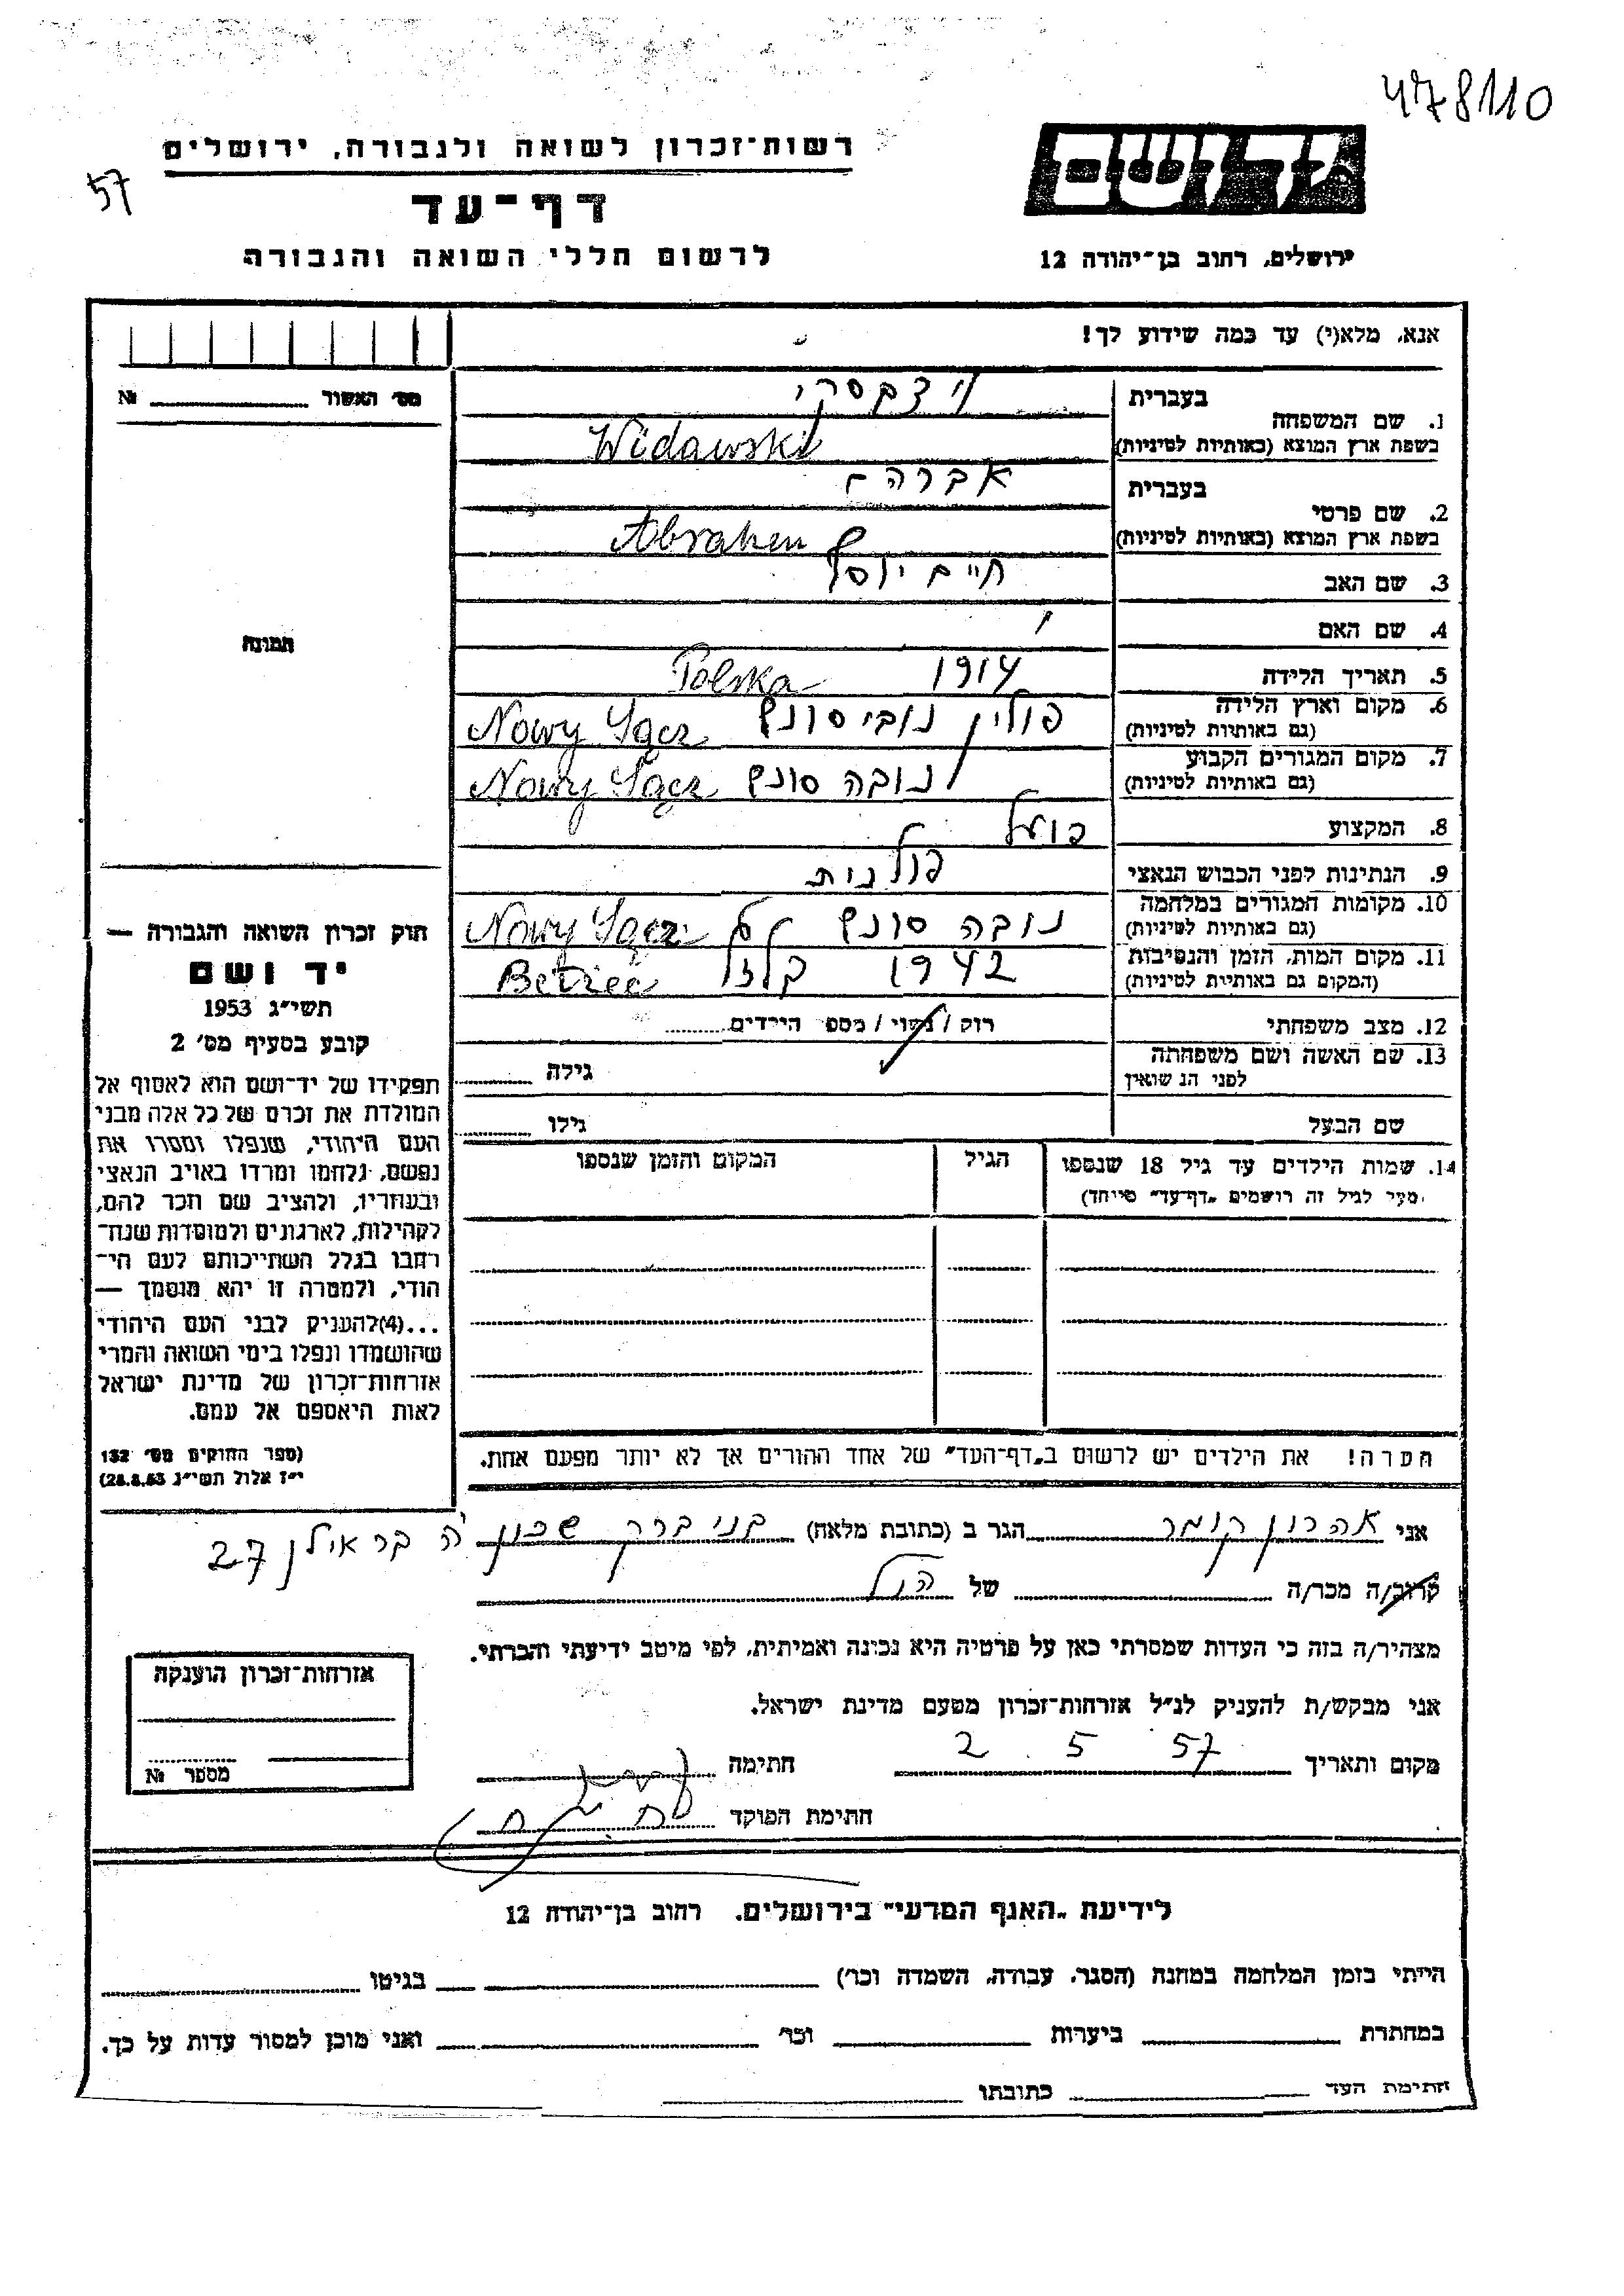 478110
רשות־זכרון לשואה ולגבורה, ירושלים
57
דף־עד
לרשום חללי השואה והגבורה
ירושלים, רחוב בן־יהודה 12
אנא, מלא(י) עד כמה שידוע לך!
מס׳ האשור №
1. שם המשפחה
בעברית
בשפת ארץ המוצא (באותיות לטיניות) Widawski
2. שם פרטי
בעברית אברהם
בשפת ארץ המוצא (באותיות לטיניות) Abraham
3. שם האב חיים יוסף
4. שם האם
5. תאריך הלידה 1914 Polska
6. מקום וארץ הלידה
(גם באותיות לטיניות) פולין נובי סונץ Nowy Sącz
7. מקום המגורים הקבוע
(גם באותיות לטיניות) נובה סונץ Nowy Sącz
8. המקצוע פועל
9. הנתינות לפני הכבוש הנאצי פולנית
10. מקומות המגורים במלחמה
(גם באותיות לטיניות) נובה סונץ Nowy Sącz
11. מקום המות, הזמן והנסיבות
(המקום גם באותיות לטיניות) 1942
12. מצב משפחתי רוק / נשוי / מספר הילדים
13. שם האשה ושם משפחתה
לפני הנשואין גילה
שם הבעל גילו
14. שמות הילדים עד גיל 18 שנספו הגיל המקום והזמן שנספו
(מעל לגיל זה רושמים „דף־עד״ מיוחד)
הערה! את הילדים יש לרשום ב„דף־העד״ של אחד ההורים אך לא יותר מפעם אחת.
תמונה
חוק זכרון השואה והגבורה —
יד ושם
תשי״ג 1953
קובע בסעיף מס׳ 2
תפקידו של יד־ושם הוא לאסוף אל
המולדת את זכרם של כל אלה מבני
העם היהודי, שנפלו ומסרו את
נפשם, נלחמו ומרדו באויב הנאצי
ובעוזריו, ולהציב שם וזכר להם,
לקהילות, לארגונים ולמוסדות שנח־
רבו בגלל השתייכותם לעם הי־
הודי, ולמטרה זו יהא מוסמך —
...(4)להעניק לבני העם היהודי
שהושמדו ונפלו בימי השואה והמרי
אזרחות־זכרון של מדינת ישראל
לאות היאספם אל עמם.
(ספר החוקים מס׳ 132
י״ז אלול תשי״ג 28.8.53)
אני אהרון קומר הגר ב (כתובת מלאה) בני ברק שכון ה בר אילן 27
קרוב/ה מכר/ה של הנ״ל
מצהיר/ה בזה כי העדות שמסרתי כאן על פרטיה היא נכונה ואמיתית, לפי מיטב ידיעתי והכרתי.
אני מבקש/ת להעניק לנ״ל אזרחות־זכרון מטעם מדינת ישראל.
מקום ותאריך 2 5 57 חתימה
חתימת הפוקד
אזרחות־זכרון הוענקה
מספר №
לידיעת „האגף המדעי״ בירושלים, רחוב בן־יהודה 12
הייתי בזמן המלחמה במחנה (הסגר, עבודה, השמדה וכר׳) בגיטו
במחתרת ביערות וכר׳ ואני מוכן למסור עדות על כך.
חתימת העד כתובתו